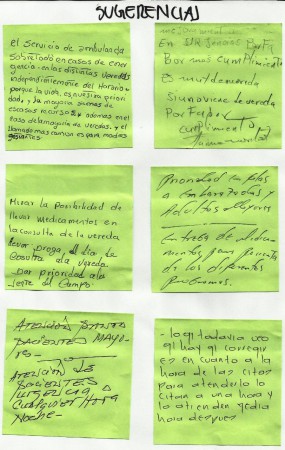 SUGERENCIAS
el servicio de ambulancia
sobre todo en casos de emer
gencia - en las distintas veredas
independientemente del Horario
porque la vida es nuestra priori
dad, y la mayoria somos de
escasos recursos y además en el
caso de la mayoria de veredas. y el
llamado mas comun es para madres
gestantes
En
Por mas cumplimiento
es muy demorada
Si una viene de vereda
Por Favor
cumplimiento
Mirar la posibilidad de
llevar medicamentos en
la consulta de la vereda
llevar el día de
Consulta de vereda
por prioridad a la
Gente del Campo.
Prioridad
a Embarazadas y
Adultos Mayores
Entrega de medica
mentos para pacientes
de los diferentes
Programas.
Atención
pacientes MAYO-
res-
ATENCION DE
PACIENTES
URGENCIAS
Cualquier Hora
Noche-
- lo q todavia veo
q hay q corregir
es en cuanto a la
hora de las citas
para atenderlo lo
citan a una hora y
lo atienden media
hora despues